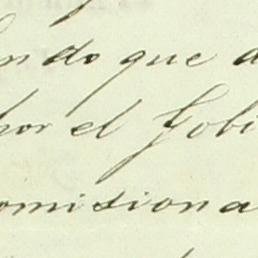 ndo que
por el Gobi
omisiona